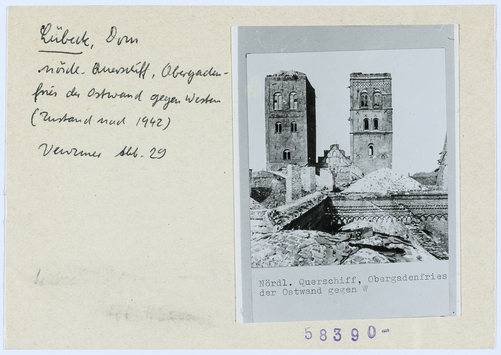 Lübeck, Dom
nördl. Querschiff, Obergaden-
fries der Ostwand gegen Westen
(Zustand nach 1942)
Abb. 29
Nördl. Querschiff, Obergadenfries
der Ostwand gegen W
58390-